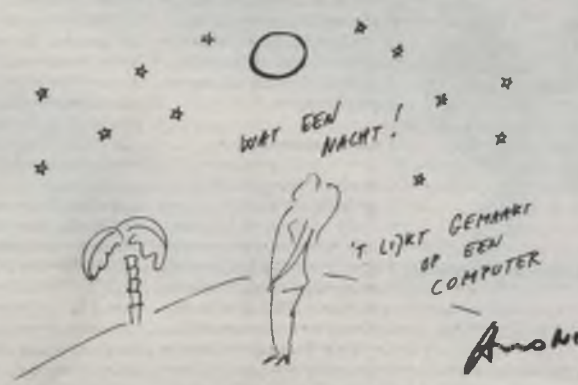 WAT EEN
NACHT!
'T LIJKT GEMAAKT
OP EEN
COMPUTER